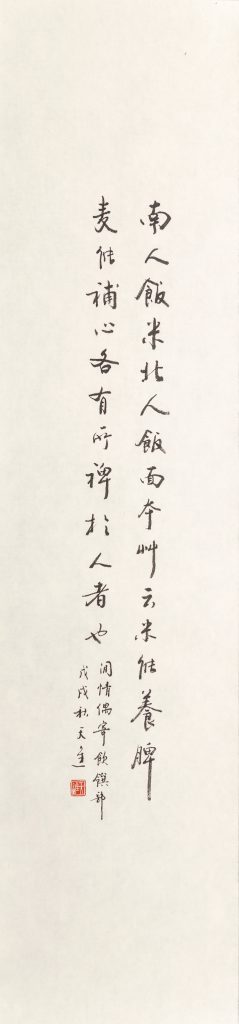 南人飯米北人飯面本艸云米能養脾
麦能補心各有所裨於人者也
閒情偶寄飲饌部
戊戌秋天